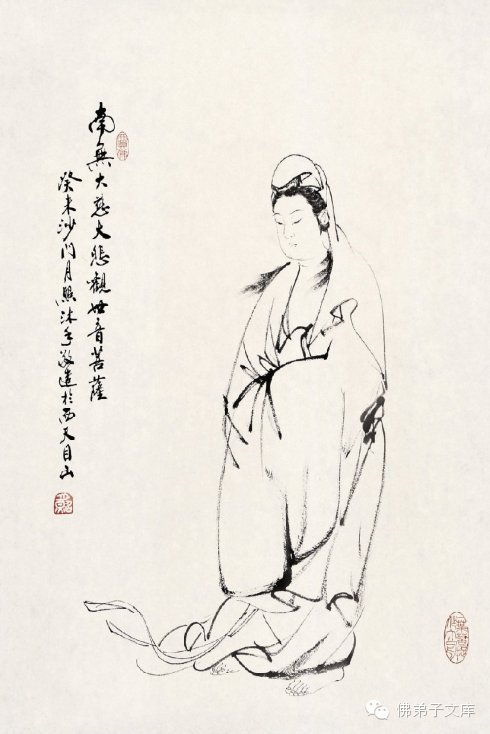 南無大慈大悲觀世音菩薩
癸未沙门月照沐手敬造於西天目山
佛弟子文库